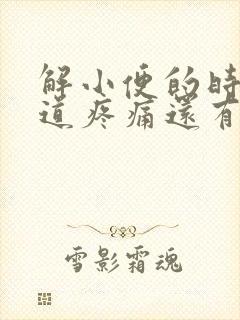 解小便的時
道疼痛還有
雪影霜魂